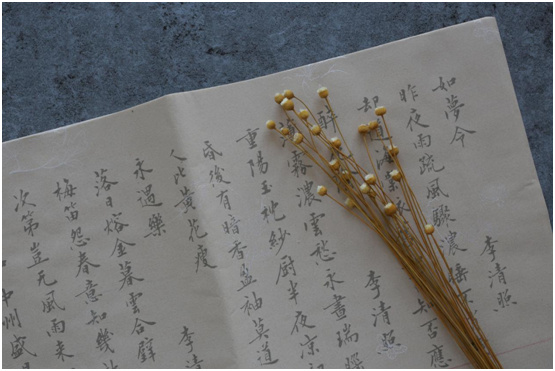 如夢令 李清照
昨夜雨疏風驟濃睡
却道海棠 知否應
醉 李清照
霧濃雲愁永晝瑞腦
重陽玉枕紗厨半夜凉初
昏後有暗香盈袖莫道
人比黃花瘦
永遇樂 李清
落日熔金暮雲合璧
梅笛怨春意知幾
次第豈无風雨來
中州盛